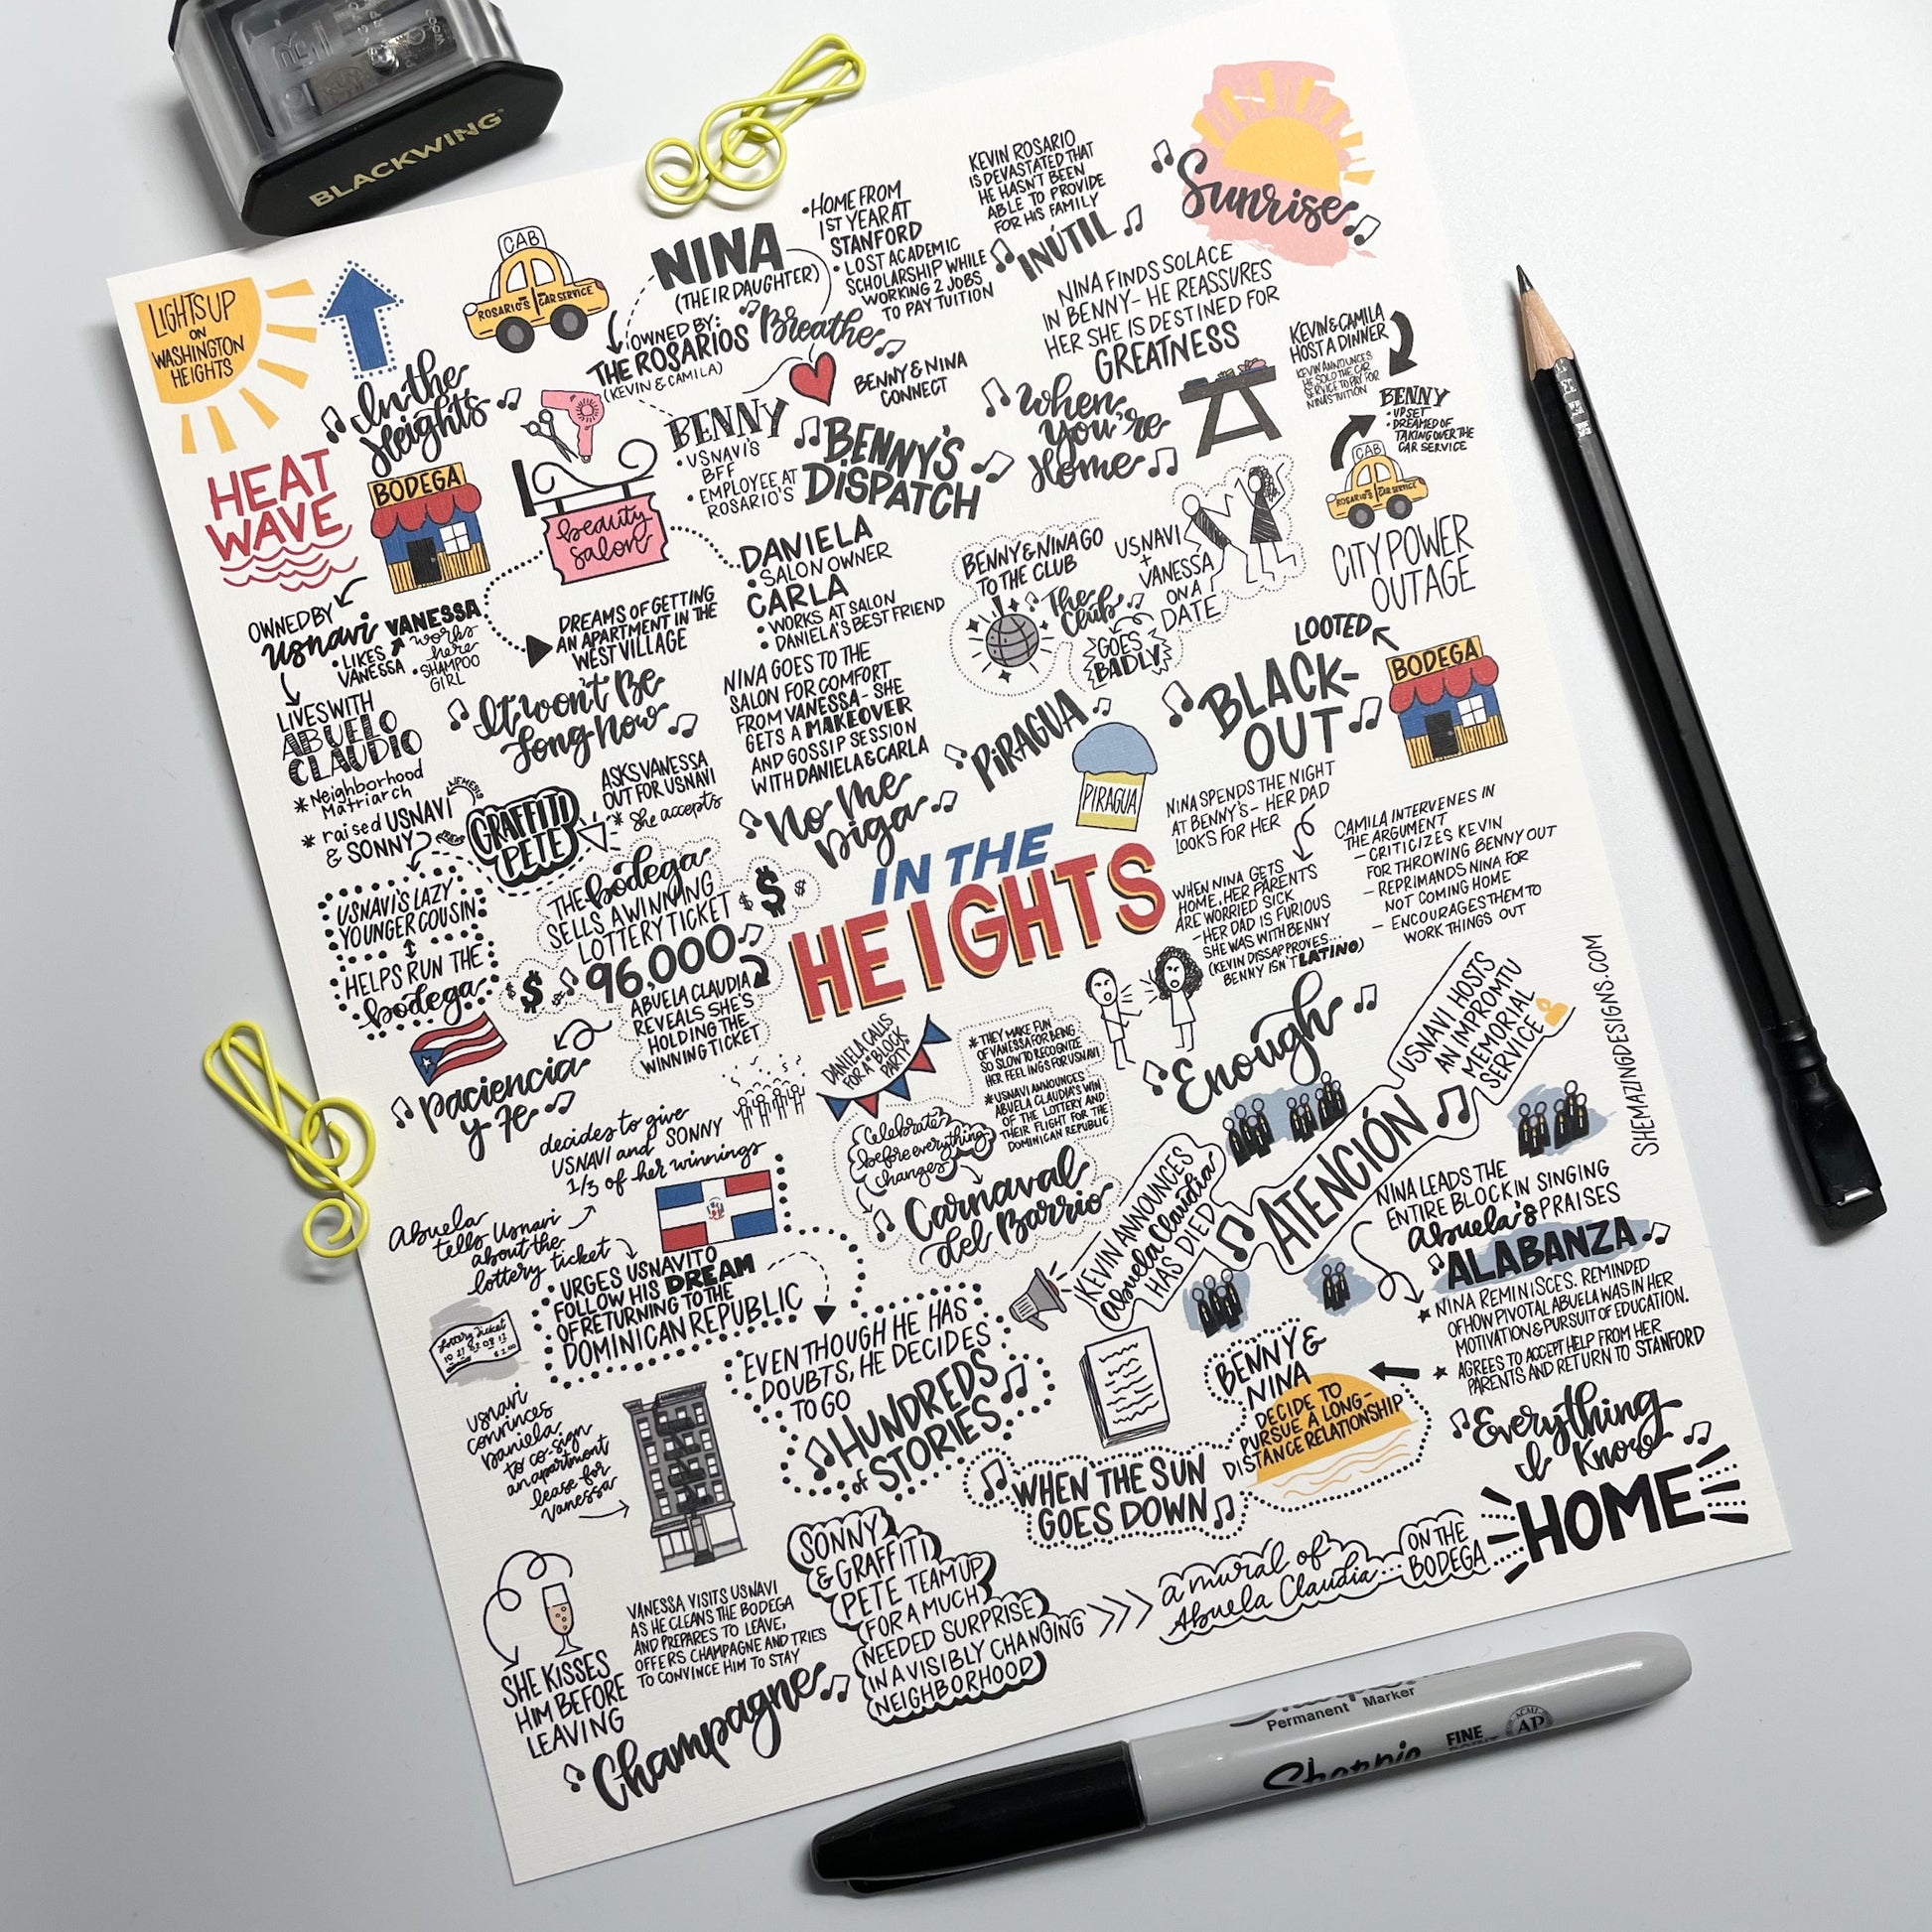 BLACKWING
LIGHTS UP
ON
WASHINGTON
HEIGHTS
In the
Heights
HEAT
WAVE
BODEGA
OWNED BY
usnavi
• LIKES
VANESSA
VANESSA
works
here
• SHAMPOO
GIRL
LIVES WITH
ABUELO
CLAUDIO
* Neighborhood
Matriarch
* raised USNAVI
& SONNY
USNAVI'S LAZY
YOUNGER COUSIN
HELPS RUN THE
bodega
NEMESIS
GRAFFITI
PETE
CAB
ROSARIO'S CAR SERVICE
NINA
(THEIR DAUGHTER)
OWNED BY:
THE ROSARIOS
(KEVIN & CAMILA)
• HOME FROM
1ST YEAR AT
STANFORD
• LOST ACADEMIC
SCHOLARSHIP WHILE
WORKING 2 JOBS
TO PAY TUITION
Breathe
BENNY & NINA
CONNECT
BENNY
• USNAVI'S
BFF
• EMPLOYEE AT
ROSARIO'S
BENNY'S
DISPATCH
beauty
salon
DANIELA
• SALON OWNER
CARLA
• WORKS AT SALON
• DANIELA'S BEST FRIEND
DREAMS OF GETTING
AN APARTMENT IN THE
WEST VILLAGE
It won't Be
Long Now
ASKS VANESSA
OUT FOR USNAVI
* she accepts
NINA GOES TO THE
SALON FOR COMFORT
FROM VANESSA - SHE
GETS A MAKEOVER
AND GOSSIP SESSION
WITH DANIELA & CARLA
No Me
Diga
KEVIN ROSARIO
IS DEVASTATED THAT
HE HASN'T BEEN
ABLE TO PROVIDE
FOR HIS FAMILY
INÚTIL
Sunrise
NINA FINDS SOLACE
IN BENNY - HE REASSURES
HER SHE IS DESTINED FOR
GREATNESS
When
You're
Home
KEVIN & CAMILA
HOST A DINNER
KEVIN ANNOUNCES
HE SOLD THE CAR
SERVICE TO PAY FOR
NINA'S TUITION
BENNY
• UPSET
• DREAMED OF
TAKING OVER THE
CAR SERVICE
CAB
ROSARIO'S CAR SERVICE
BENNY & NINA GO
TO THE CLUB
The
Club
USNAVI
+
VANESSA
ON A
DATE
GOES
BADLY
CITY POWER
OUTAGE
LOOTED
BODEGA
BLACK-
OUT
PIRAGUA
PIRAGUA
NINA SPENDS THE NIGHT
AT BENNY'S - HER DAD
LOOKS FOR HER
WHEN NINA GETS
HOME, HER PARENTS
ARE WORRIED SICK
- HER DAD IS FURIOUS
SHE WAS WITH BENNY
(KEVIN DISSAPROVES...
BENNY ISN'T LATINO)
CAMILA INTERVENES IN
THE ARGUMENT
- CRITICIZES KEVIN
FOR THROWING BENNY OUT
- REPRIMANDS NINA FOR
NOT COMING HOME
- ENCOURAGES THEM TO
WORK THINGS OUT
Enough
IN THE
HEIGHTS
THE bodega
SELLS A WINNING
LOTTERY TICKET
$ $
$ $
96,000
ABUELA CLAUDIA
REVEALS SHE'S
HOLDING THE
WINNING TICKET
paciencia
y Fe
decides to give
USNAVI and SONNY
1/3 of her winnings
Abuela
tells Usnavi
about the
lottery ticket
Lottery Ticket
URGES USNAVI TO
FOLLOW HIS DREAM
OF RETURNING TO THE
DOMINICAN REPUBLIC
EVEN THOUGH HE HAS
DOUBTS, HE DECIDES
TO GO
HUNDREDS
of STORIES
DANIELA CALLS
FOR A "BLOCK
PARTY"
Celebrates
before everything
changes
Carnaval
del Barrio
* THEY MAKE FUN
OF VANESSA FOR BEING
SO SLOW TO RECOGNIZE
HER FEELINGS FOR USNAVI
* USNAVI ANNOUNCES
ABUELA CLAUDIA'S WIN
OF THE LOTTERY AND
THEIR FLIGHT FOR THE
DOMINICAN REPUBLIC
KEVIN ANNOUNCES
Abuela Claudia
HAS DIED
ATENCIÓN
USNAVI HOSTS
AN IMPROMTU
MEMORIAL
SERVICE
SHEMAZINGDESIGNS.COM
NINA LEADS THE
ENTIRE BLOCK IN SINGING
Abuela's PRAISES
ALABANZA
★ NINA REMINISCES. REMINDED
OF HOW PIVOTAL ABUELA WAS IN HER
MOTIVATION & PURSUIT OF EDUCATION.
★ AGREES TO ACCEPT HELP FROM HER
PARENTS AND RETURN TO STANFORD
BENNY &
NINA
DECIDE TO
PURSUE A LONG-
DISTANCE RELATIONSHIP
WHEN THE SUN
GOES DOWN
Everything
I Know
HOME
usnavi
convinces
Daniela
to co-sign
an apartment
lease for
Vanessa
SHE KISSES
HIM BEFORE
LEAVING
VANESSA VISITS USNAVI
AS HE CLEANS THE BODEGA
AND PREPARES TO LEAVE,
OFFERS CHAMPAGNE AND TRIES
TO CONVINCE HIM TO STAY
Champagne
SONNY
& GRAFFITI
PETE TEAM UP
FOR A MUCH
NEEDED SURPRISE
IN A VISIBLY CHANGING
NEIGHBORHOOD
a mural of
Abuela Claudia...
ON THE
BODEGA
Permanent Marker
Sharpie
FINE
AP